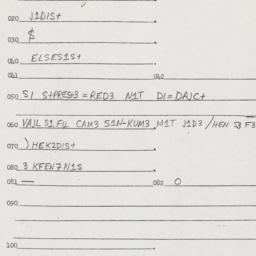 020 J1DIS+
030 $
040 ELSES1S+
041 042
050 S1 S+PRES3=RED3 N1T D1=DAJC+
060 VAJL S1 FLL CAM3 S1N-KUM3 M1T J1D3 /HEN S3 F3
070 ) HEK2DIS+
080 3 KFEN7N1S
081 — 082 0
090
100